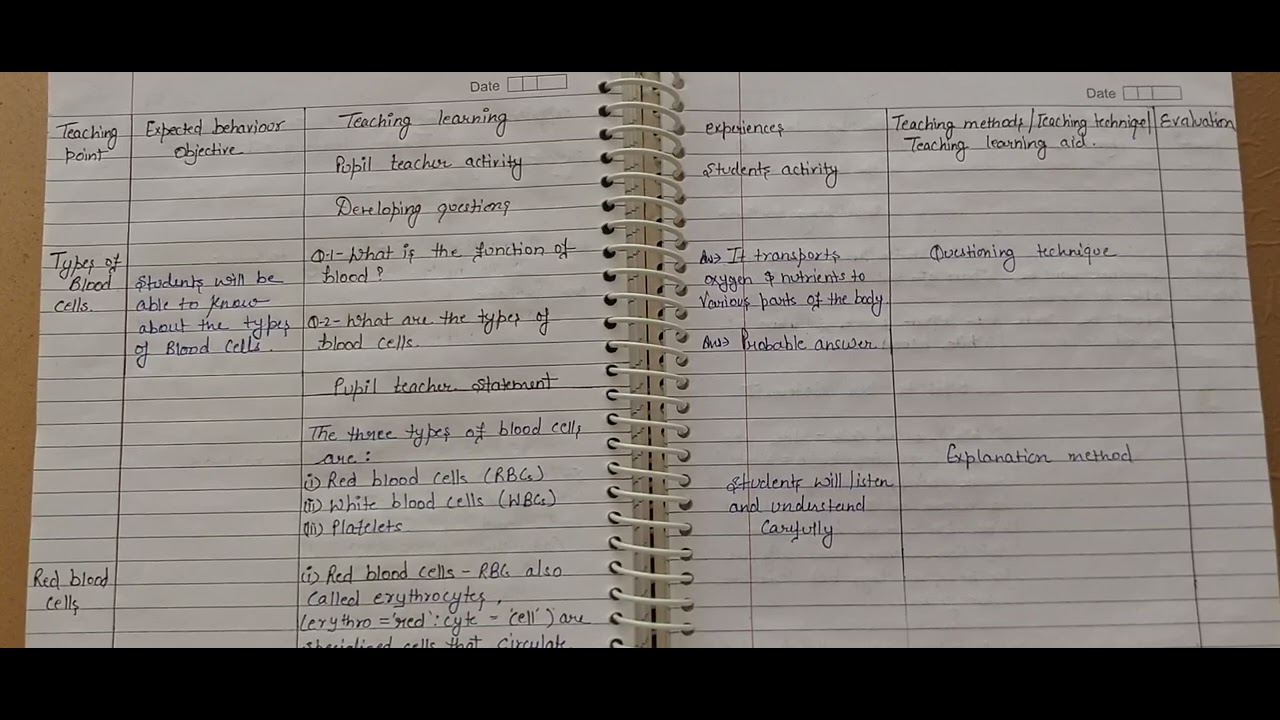 Date
Teaching point
Expected behaviour objective
Teaching learning
Pupil teacher activity
Developing questions
Types of Blood cells.
Students will be
able to know
about the types
of Blood Cells.
Q.1- What is the function of
blood ?
Q.2- What are the types of
blood cells.
Pupil teacher statement
The three types of blood cells
are :
(i) Red blood cells (RBCs)
(ii) White blood cells (WBCs)
(iii) Platelets
Red blood
cells
(i) Red blood cells - RBC also
called erythrocytes,
(erythro = 'red' : cyte - 'cell') are
specialized cells that circulate
Date
experiences
Students activity
Teaching methods / Teaching technique/
Teaching learning aid.
Evaluation
Ans → It transports
oxygen & nutrients to
various parts of the body.
Questioning technique
Ans → Probable answer.
Explanation method
Students will listen
and understand
Carfully